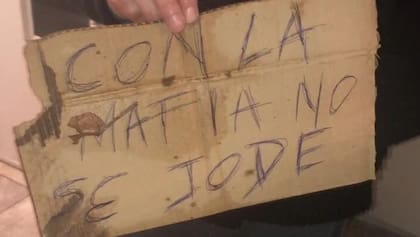 CON LA
MAFIA NO
SE JODE